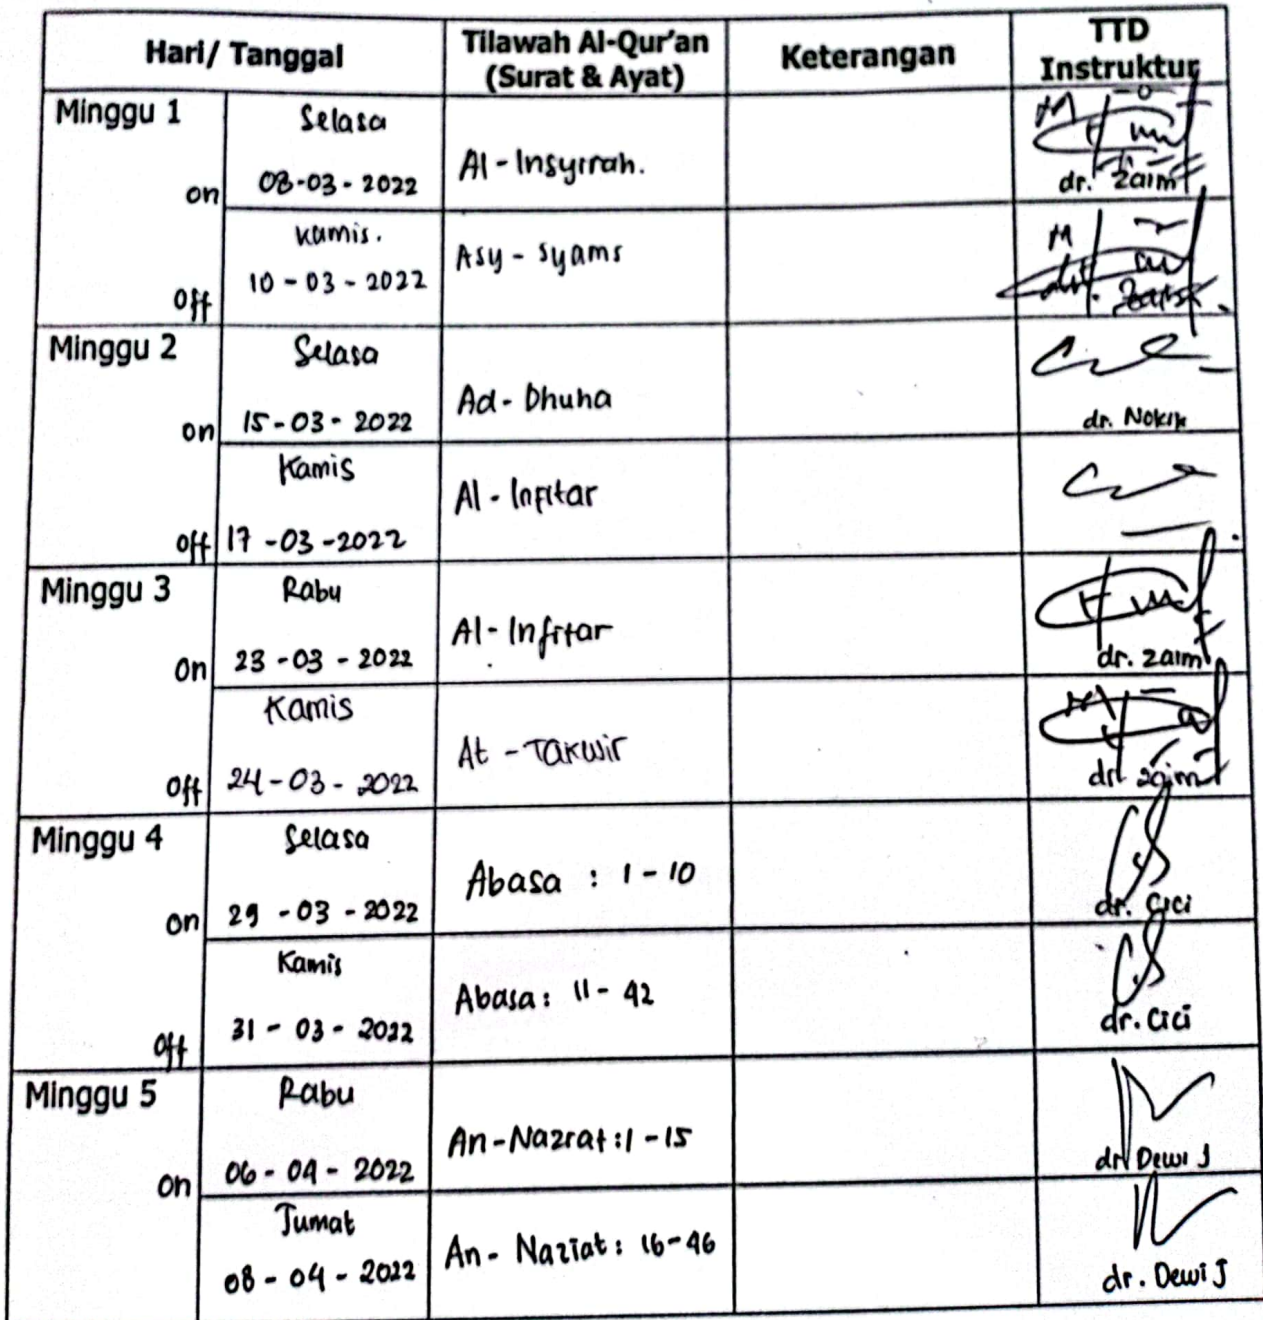 Hari/ Tanggal
Tilawah Al-Qur'an
(Surat & Ayat)
Keterangan
TTD
Instruktur
Minggu 1
on
Selasa
08-03-2022
Al-Insyirah.
dr. Zaim
off
Kamis.
10-03-2022
Asy-Syams
Minggu 2
on
Selasa
15-03-2022
Ad-Dhuha
dr.
off
Kamis
17-03-2022
Al-Infitar
Minggu 3
on
Rabu
23-03-2022
Al-Infitar
dr. Zaim
off
Kamis
24-03-2022
At-Takwir
dr. Zaim
Minggu 4
on
Selasa
29-03-2022
Abasa : 1-10
dr. Cici
off
Kamis
31-03-2022
Abasa : 11-42
dr. Cici
Minggu 5
on
Rabu
06-04-2022
An-Naziat : 1-15
dr. Dewi J
Jumat
08-04-2022
An-Naziat : 16-46
dr. Dewi J